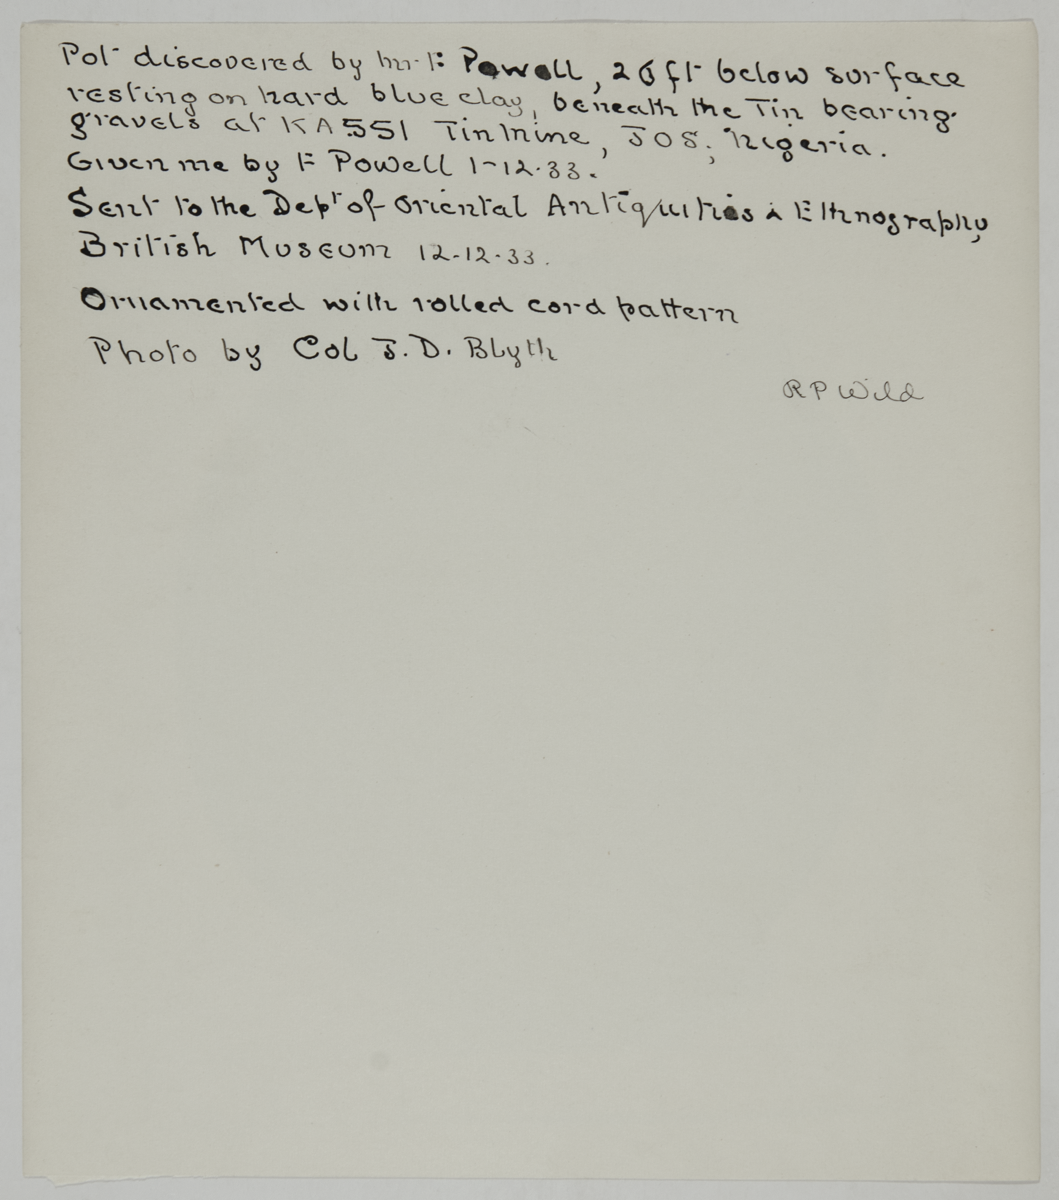 Pot discovered by Mr F Powell, 26 ft below surface
resting on hard blue clay, beneath the Tin bearing
gravels at KA551 Tin Mine, JOS, Nigeria.
Given me by F Powell 1-12.33.
Sent to the Dept of Oriental Antiquities & Ethnography,
British Museum 12-12.33.
Ornamented with rolled cord pattern
Photo by Col J. D. Blyth
R P Wild